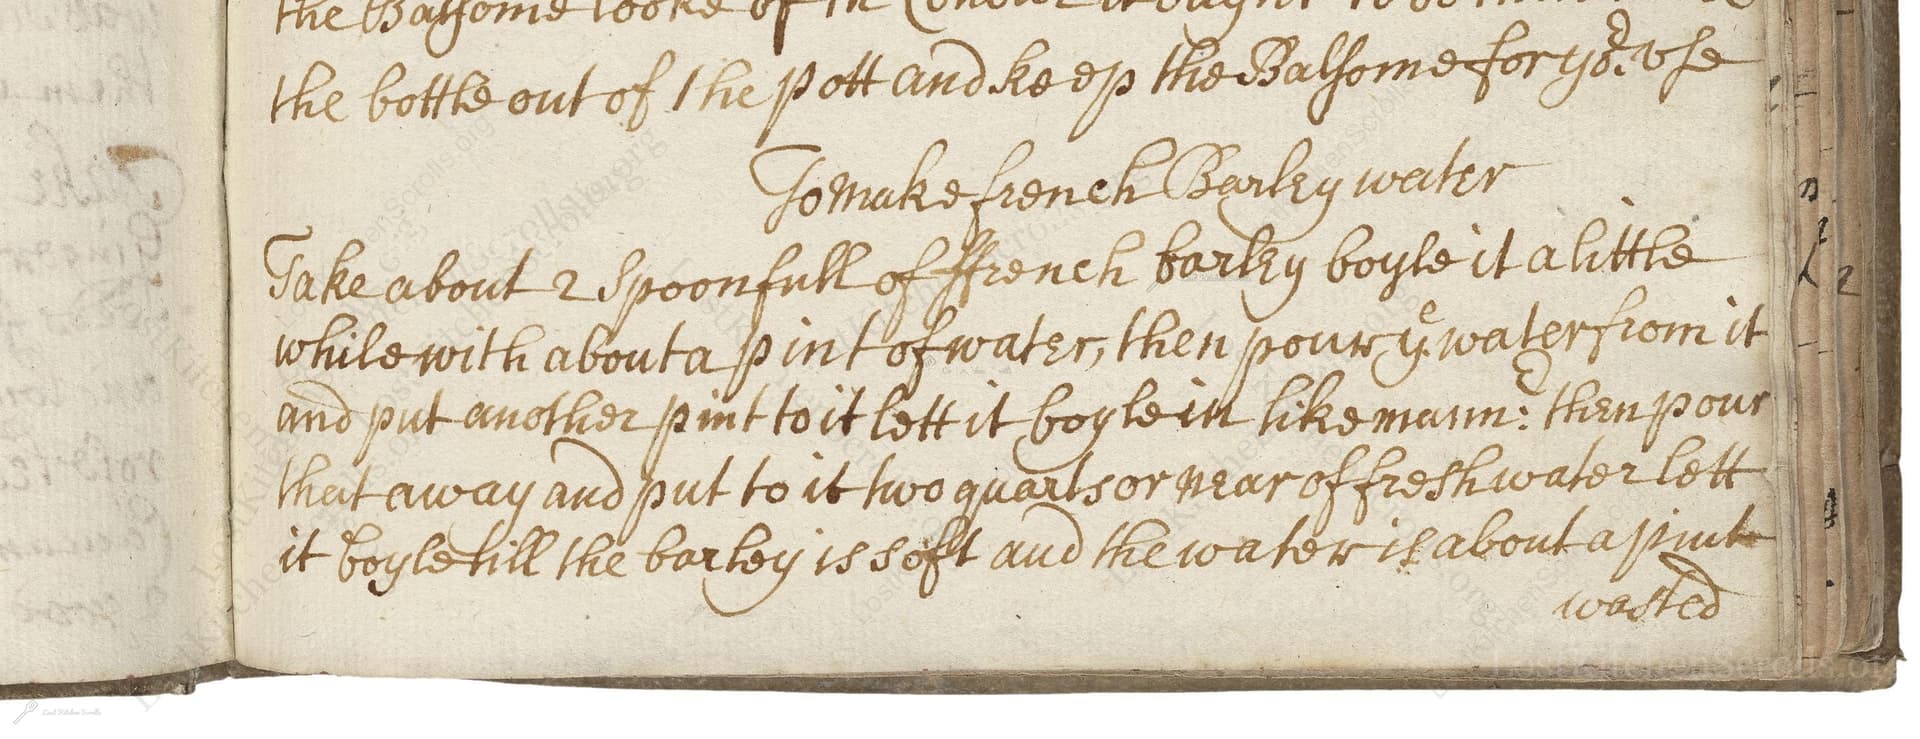 the Balsome looke of th Couller it ought to be then take
the bottle out of the pott and keep the Balsome for yor: vse
To make french Barley water
Take about 2 spoonfull of ffrench barley boyle it a little
while with about a pint of water, then pour ye water from it
and put another pint to it lett it boyle in like mann: then pour
that away and put to it two quarts or near of fresh water lett
it boyle till the barley is soft and the water is about a pint
wasted